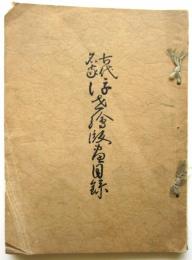 古代
名家
浮世繪版畫目録